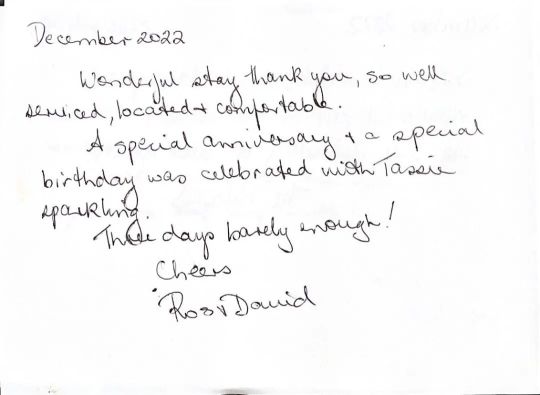 December 2022
Wonderful stay thank you, so well
serviced, located + comfortable.
A special anniversary + a special
birthday was celebrated with Tassie
sparkling.
Three days barely enough!
Cheers
Ros + David